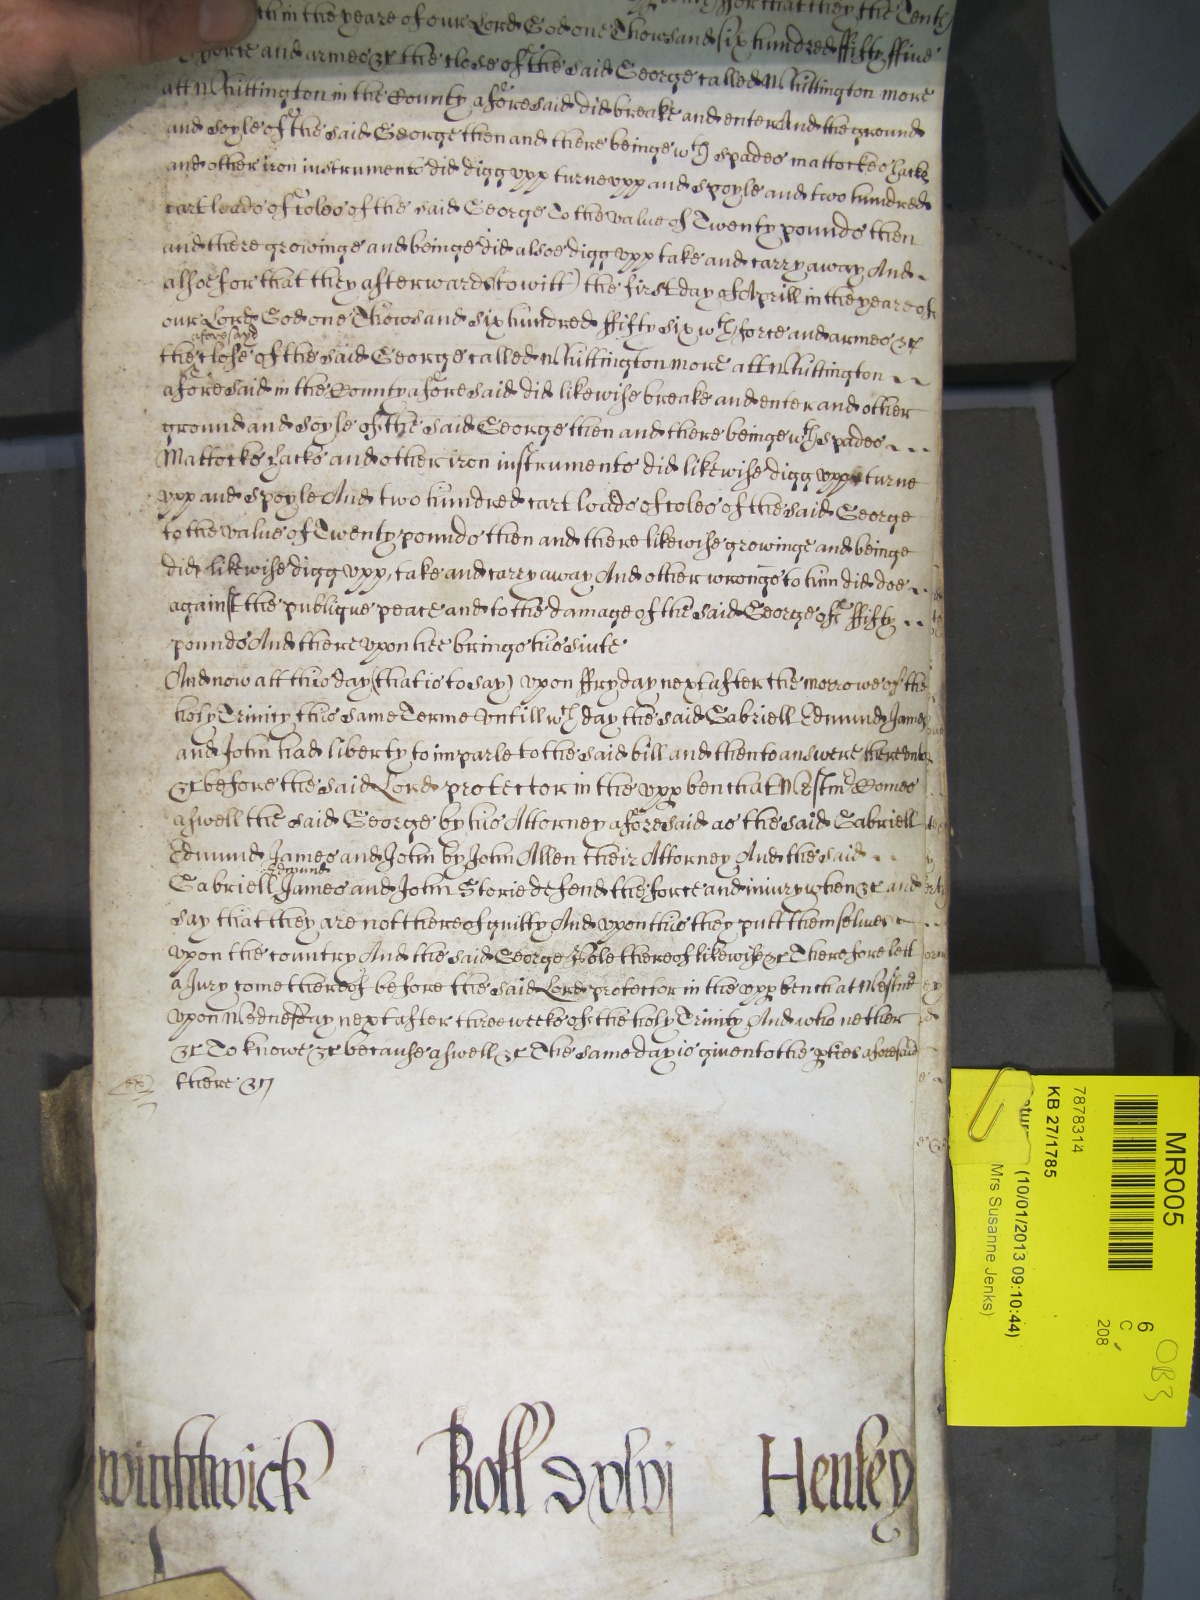 for that they the Tenth
in the yeare of our Lord God one Thowsand six hundred ffifty ffive
force and armes &c the close of the said George called Whittington more
att Whittington in the County aforesaid did breake and enter And the ground
and soyle of the said George then and there beinge wth spades mattockes hacks
and other iron instruments did digg vpp turne vpp and spoyle and two hundred
cart loads of coles of the said George To the value of Twenty pounds then
and there growinge and beinge did alsoe digg vpp take and carry away And
alsoe for that they afterwards (to witt) the first day of Aprill in the yeare of
our Lord God one Thowsand six hundred ffifty six wth force and armes &c
aforesayd
the close of the said George called Whittington more att Whittington
aforesaid in the County aforesaid did likewise breake and enter and other
ground and soyle of the said George then and there beinge wth spades
Mattocks hacks and other iron instruments did likewise digg vpp turne
vpp and spoyle And two hundred cart loads of coles of the said George
to the value of Twenty pounds then and there likewise growinge and beinge
did likewise digg vpp, take and carry away And other wrongs to him did doe
against the publique peace and to the damage of the said George of ffifty
pounds And therevpon hee brings his suite
And now att this day (that is to say) vpon ffryday next after the morrowe of the
holy Trinity this same Terme vntill wch day the said Gabriell Edmund James
and John had liberty to imparle to the said bill and then to answere therevnto
&c before the said Lord protector in the vpp bench at Westmr Comes
aswell the said George by his Attorney aforesaid as the said Gabriell
Edmund James and John by John Allen their Attorney And the said
Edmund
Gabriell James and John Storie defend the force and iniury when &c and
say that they are not thereof guilty And vpon this they putt themselues
vpon the country And the said George thereof likewise &c Therefore lett
a Jury come thereof before the said Lord protector in the vpp bench at Westmr
vpon Wednesday next after three weeks of the holy Trinity And who neither
&c To knowe &c because aswell &c The same day is given to the pties aforesaid
there &c
Wightwick Roll Henley
MR005
6
C
208
OB3
7878314
KB 27/1785
(10/01/2013 09:10:44)
Mrs Susanne Jenks)